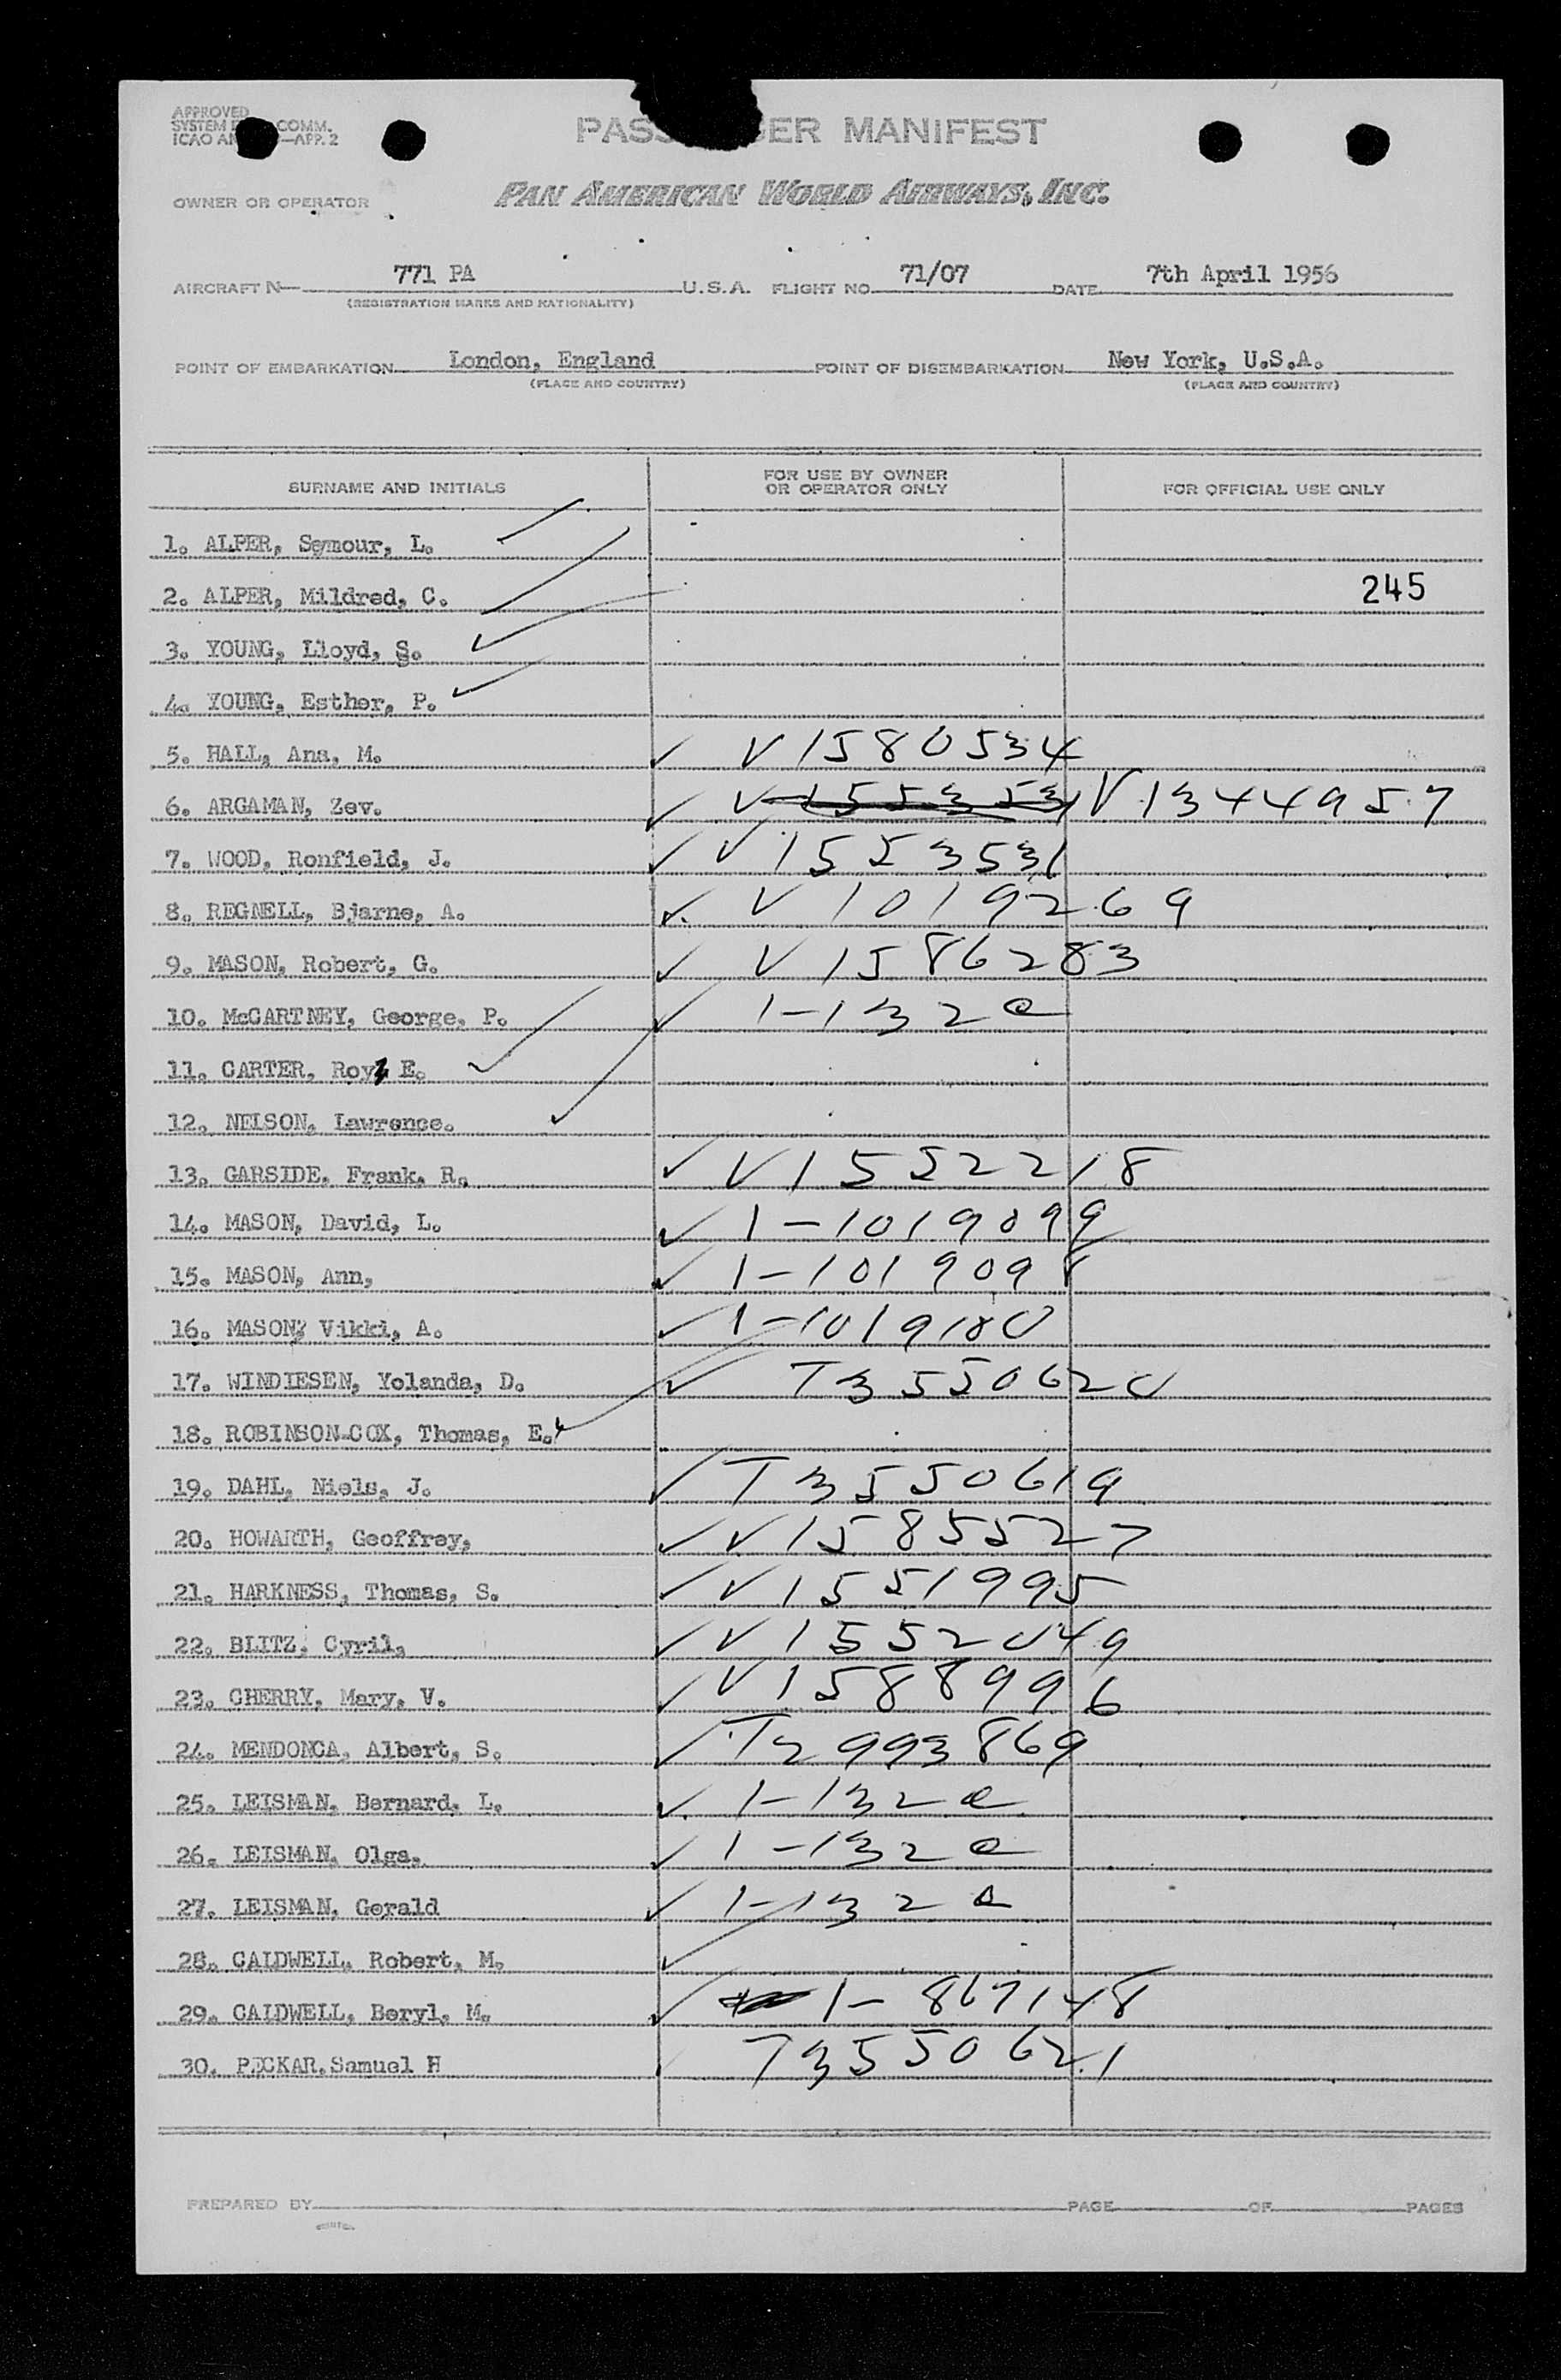 APPROVED
SYSTEM COMM.
ICAO AN —APP. 2
PASS ER MANIFEST
OWNER OR OPERATOR PAN AMERICAN WORLD AIRWAYS, INC.
AIRCRAFT N— 771 PA U.S.A. FLIGHT NO. 71/07 DATE 7th April 1956
(REGISTRATION MARKS AND NATIONALITY)
POINT OF EMBARKATION London, England POINT OF DISEMBARKATION New York, U.S.A.
(PLACE AND COUNTRY) (PLACE AND COUNTRY)
SURNAME AND INITIALS FOR USE BY OWNER OR OPERATOR ONLY FOR OFFICIAL USE ONLY
1. ALPER, Seymour, L.
2. ALPER, Mildred, C. 245
3. YOUNG, Lloyd, S.
4. YOUNG, Esther, P.
5. HALL, Ana, M. ✓ V1580534
6. ARGAMAN, Zev. ✓ V155353 V1344957
7. WOOD, Ronfield, J. ✓ V1553531
8. REGNELL, Bjarne, A. ✓ V1019269
9. MASON, Robert, G. ✓ V1586283
10. McCARTNEY, George, P. ✓ 1-132a
11. CARTER, Roy, E. ✓
12. NELSON, Lawrence. ✓
13. GARSIDE, Frank, R. ✓ V1552218
14. MASON, David, L. ✓ 1-1019099
15. MASON, Ann, ✓ 1-1019098
16. MASON, Vikki, A. ✓ 1-1019100
17. WINDIESEN, Yolanda, D. ✓ T3550620
18. ROBINSON-COX, Thomas, E. ✓
19. DAHL, Niels, J. ✓ T3550619
20. HOWARTH, Geoffrey, ✓ V1585527
21. HARKNESS, Thomas, S. ✓ V1551995
22. BLITZ, Cyril, ✓ V1552049
23. CHERRY, Mary, V. ✓ V1588996
24. MENDONCA, Albert, S. ✓ T2993869
25. LEISMAN, Bernard, L. ✓ 1-132a
26. LEISMAN, Olga. ✓ 1-132a
27. LEISMAN, Gerald ✓ 1-132a
28. CALDWELL, Robert, M. ✓
29. CALDWELL, Beryl, M. ✓ 1-867148
30. PECKAR, Samuel H T3550621
PREPARED BY PAGE OF PAGES